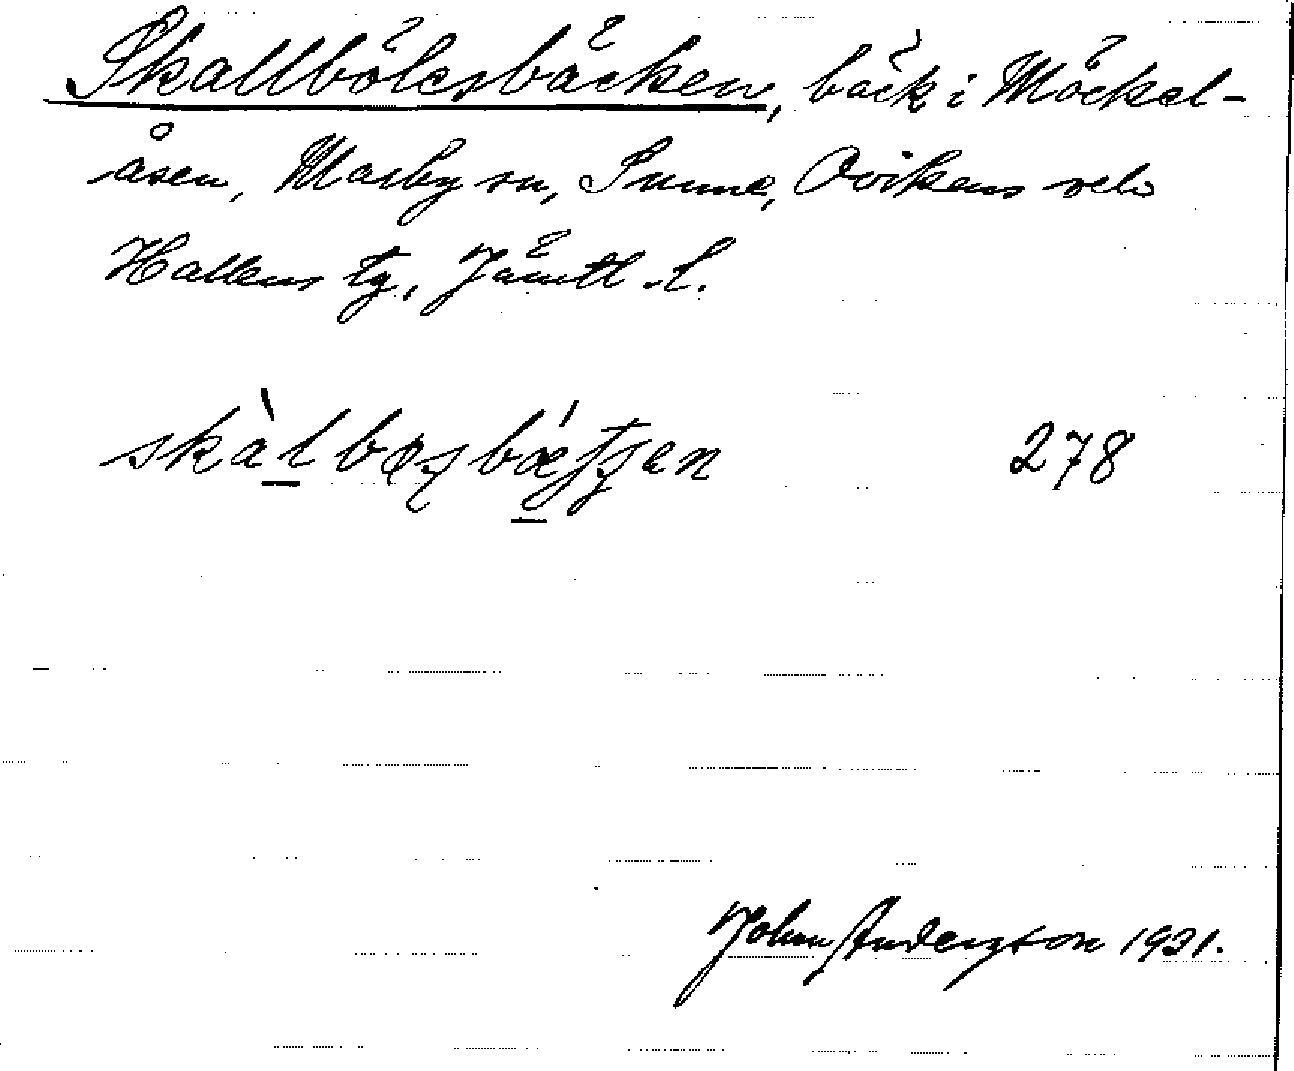 Skallbölesbäcken, bäck i Möckel-
åsen, Marby sn, Sunne, Ovikens och
Hallens tg, Jämtl. L.
278
John Andersson 1931.